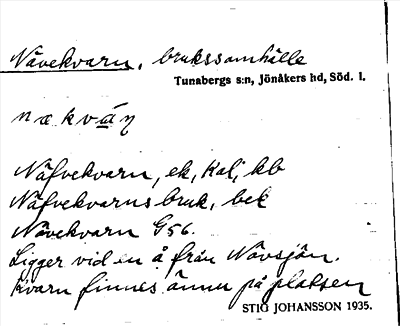 Nävekvarn, brukssamhälle
Tunabergs s:n, Jönåkers hd, Söd. l.
nækvá̱ṇ
Näfvekvarn, ek, Kal, kb
Näfvekvarns bruk, bek
Nävekvarn G56.
Ligger vid en å från Nävsjön.
Kvarn finnes ännu på platsen
STIG JOHANSSON 1935.